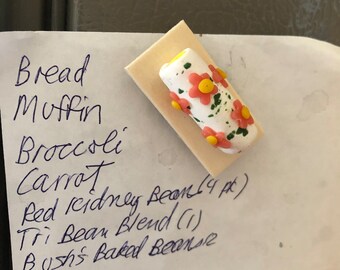 Bread
Muffin
Broccoli
Carrot
Red Kidney Bean (4 pk)
Tri Bean Blend (1)
Bush's Baked Beans